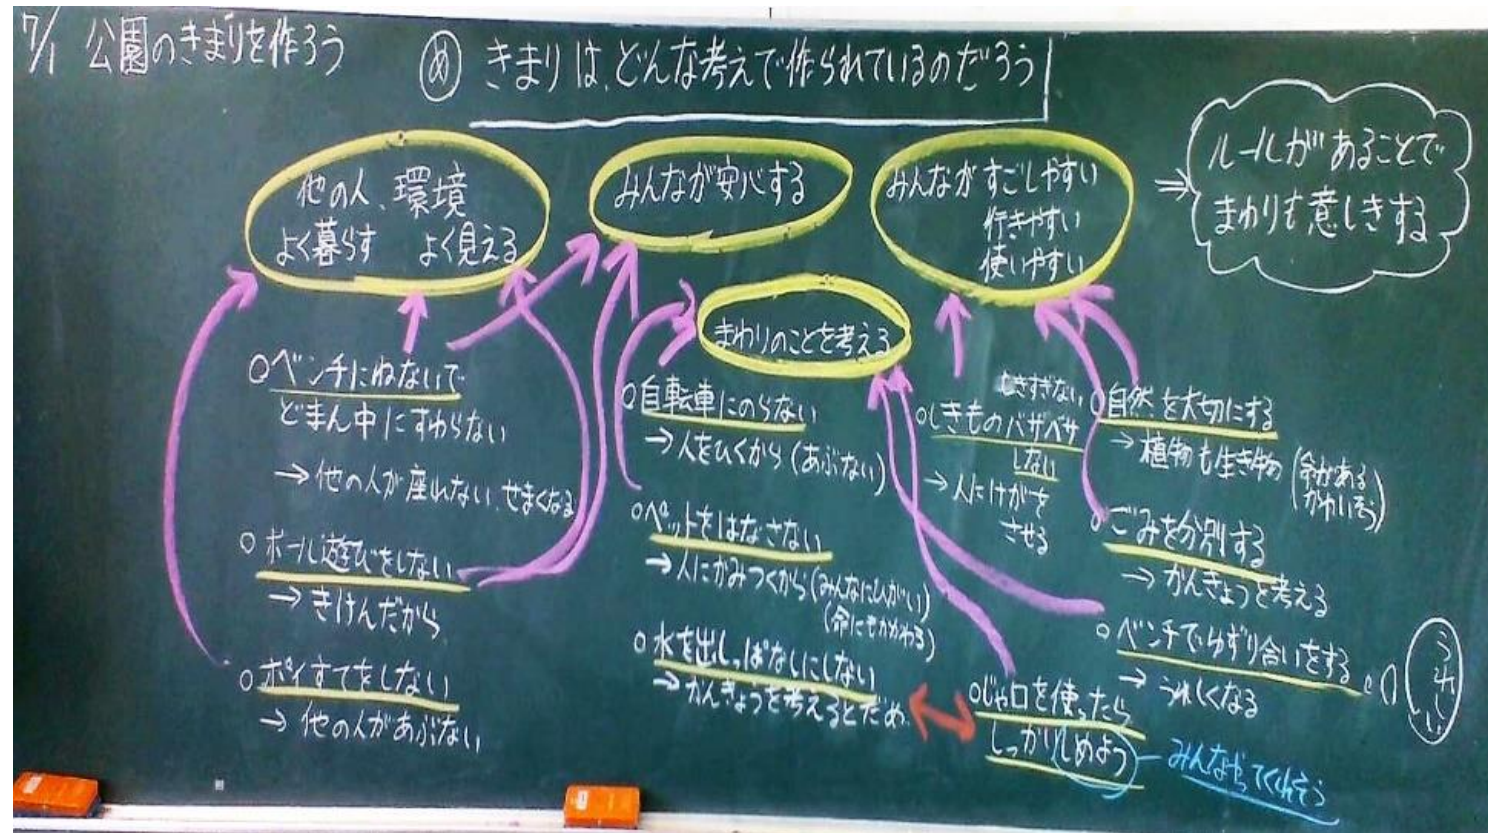 7/1 公園のきまりを作ろう
め きまりは、どんな考えで作られているのだろう
他の人、環境
よく暮らす よく見える
みんなが安心する
みんながすごしやすい
行きやすい
使いやすい
⇒ ルールがあることで
まわりも意しきする
まわりのことを考える
○ベンチにねないで
どまん中にすわらない
→他の人が座れない、せまくなる
○ボール遊びをしない
→きけんだから
○ポイすてをしない
→他の人があぶない
○自転車にのらない
→人をひくから(あぶない)
○ペットをはなさない
→人にかみつくから(みんなにひがい)
(命にもかかわる)
○水を出しっぱなしにしない
→かんきょうを考えるとだめ
○しきものバサバサ
しない
→人にけがを
させる
○じゃ口を使ったら
しっかりしめよう
みんなやってくれそう
○自然を大切にする
→植物も生き物(命がある
かわいそう)
○ごみを分別する
→かんきょうを考える
○ベンチでゆずり合いをする
→うれしくなる
うれしい